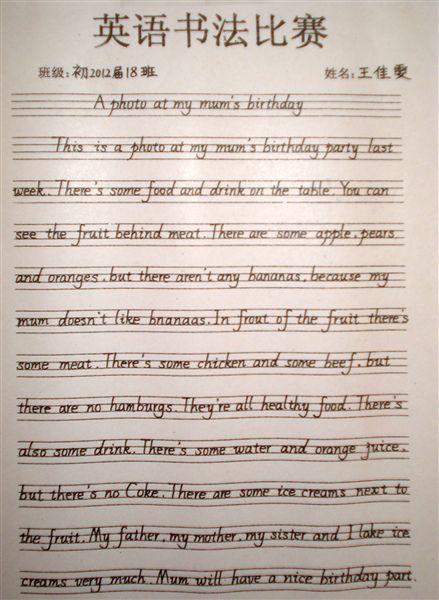 英语书法比赛
班级:初2012届18班 姓名:王佳雯
A photo at my mum's birthday
This is a photo at my mum's birthday party last
week. There's some food and drink on the table. You can
see the fruit behind meat. There are some apple, pears
and oranges, but there aren't any bananas, because my
mum doesn't like bnanaas. In frout of the fruit there's
some meat. There's some chicken and some beef, but
there are no hamburgs. They're all healthy food. There's
also some drink. There's some water and orange juice,
but there's no Coke. There are some ice creams next to
the fruit. My father, my mother, my sister and I lake ice
creams very much. Mum will have a nice birthday part.